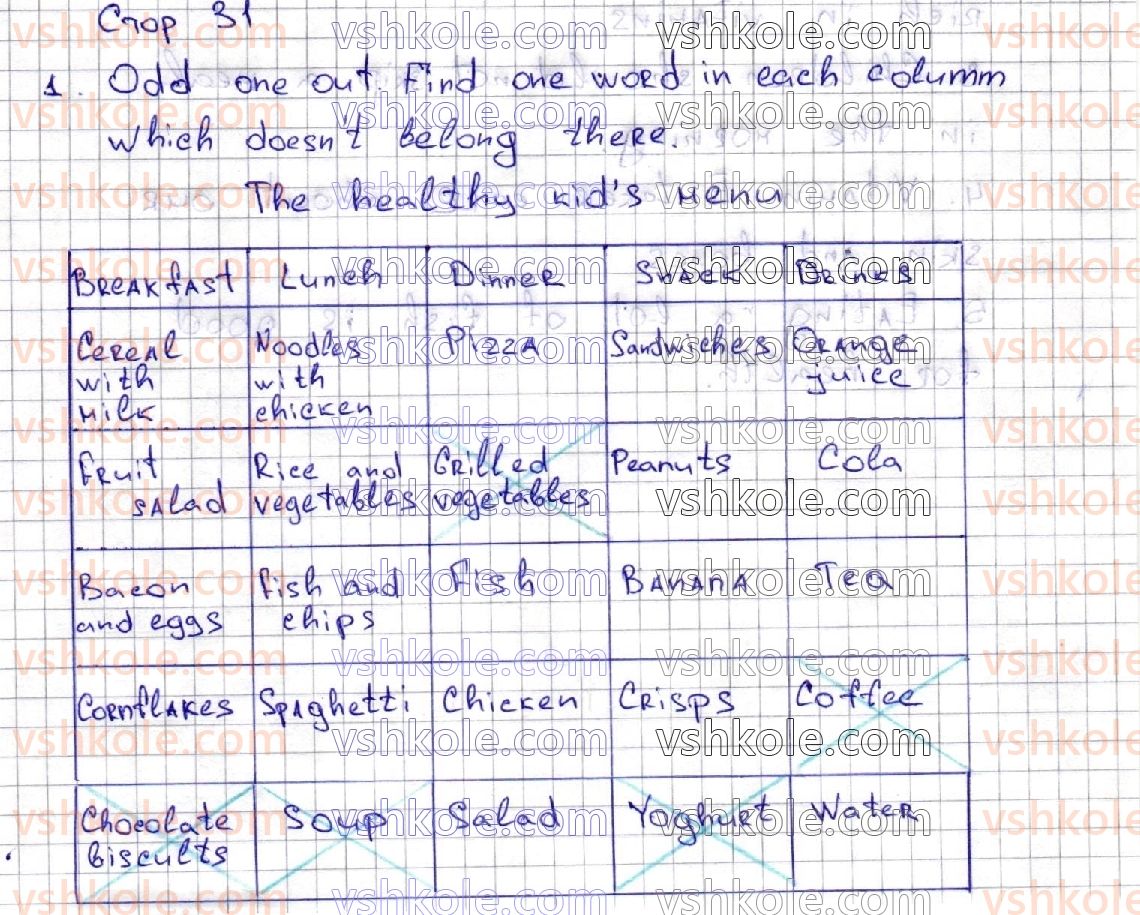 Стор 31
1. Odd one out. Find one word in each columm
which doesn't belong there.
The healthy kid's menu
Breakfast Lunch Dinner Snack Drinks
Cereal with milk Noodles with chicken Pizza Sandwiches Orange juice
Fruit salad Rice and vegetables Grilled vegetables Peanuts Cola
Bacon and eggs Fish and chips Fish Banana Tea
Cornflakes Spaghetti Chicken Crisps Coffee
Chocolate biscuits Soup Salad Yoghurt Water
vshkole.com